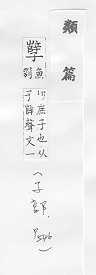 類篇
孽
魚
列
切庶子也从
子辥聲文一
(子部 P546)